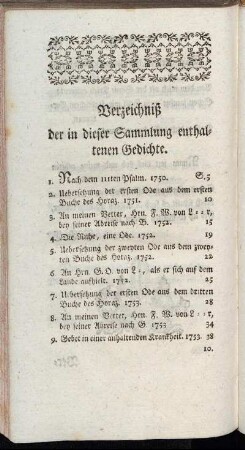 Verzeichniß
der in dieser Sammlung enthal-
tenen Gedichte.
1. Nach dem 11ten Psalm. 1750. S. 5
2. Uebersetzung der ersten Ode aus dem ersten
Buche des Horaz. 1751. 10
3. An meinen Vetter, Hrn. F. W. von L--r,
bey seiner Abreise nach B. 1752. 15
4. Die Ruhe, eine Ode. 1752. 19
5. Uebersetzung der zweyten Ode aus dem zwey-
ten Buche des Horaz. 1752. 22
6. An Hrn. G. O. von L--, als er sich auf dem
Lande aufhielt. 1752. 25
7. Uebersetzung der ersten Ode aus dem dritten
Buche des Horaz. 1753. 28
8. An meinen Vetter, Hrn. F. W. von L--r,
bey seiner Abreise nach G. 1753 34
9. Gebet in einer anhaltenden Krankheit. 1753. 38
10.